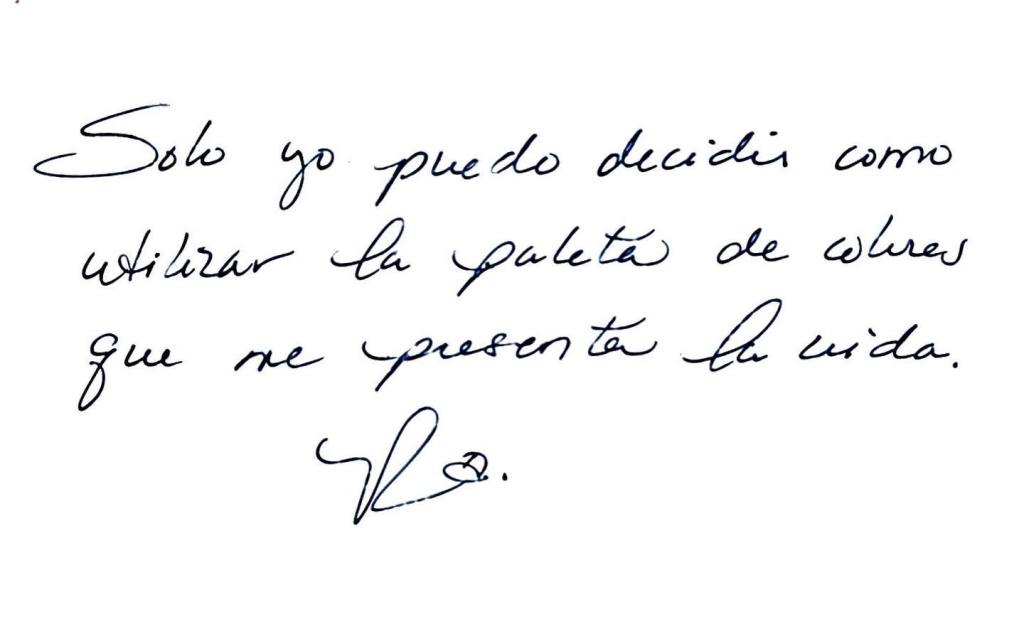 Solo yo puedo decidir como
utilizar la paleta de colores
que me presenta la vida.